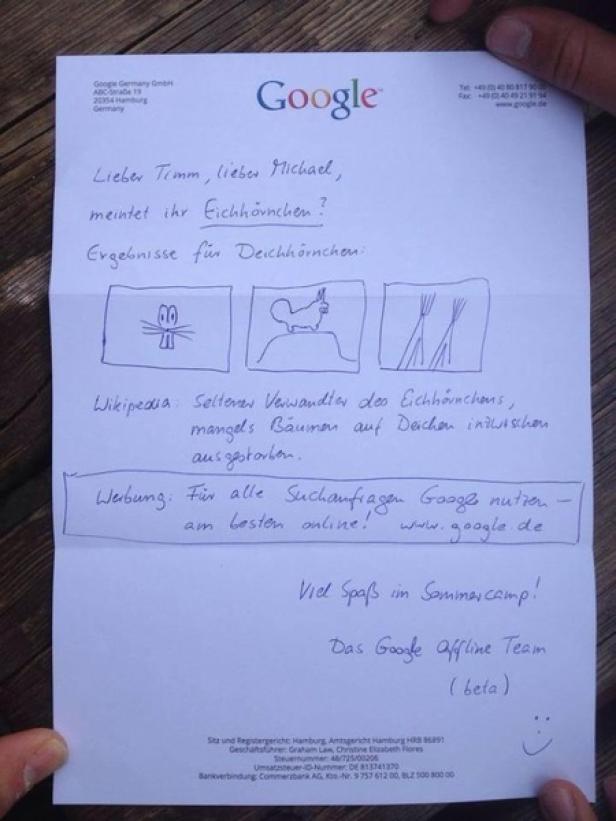 Google Germany GmbH
ABC-Straße 19
20354 Hamburg
Germany
Google™
Tel: +49 (0) 40 80 817 90 00
Fax: +49 (0) 40 49 21 91 94
www.google.de
Lieber Timm, lieber Michael,
meintet ihr Eichhörnchen?
Ergebnisse für Deichhörnchen:
Wikipedia: Seltener Verwandter des Eichhörnchens,
mangels Bäumen auf Deichen inzwischen
ausgestorben.
Werbung: Für alle Suchanfragen Google nutzen –
am besten online! www.google.de
Viel Spaß im Sommercamp!
Das Google Offline Team
(beta)
Sitz und Registergericht: Hamburg, Amtsgericht Hamburg HRB 86891
Geschäftsführer: Graham Law, Christine Elizabeth Flores
Steuernummer: 48/725/00206
Umsatzsteuer-ID-Nummer: DE 813741370
Bankverbindung: Commerzbank AG, Kto.-Nr. 9 757 612 00, BLZ 500 800 00